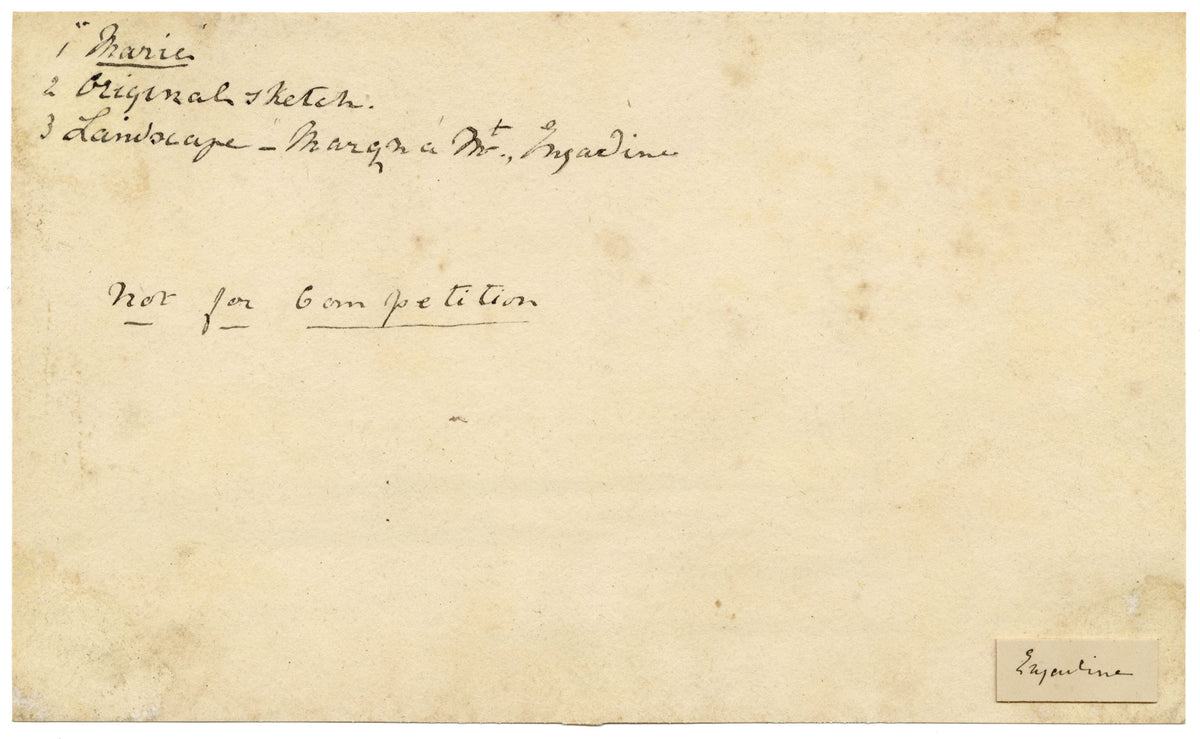 1 "Marie"
2 Original sketch.
3 Landscape – Margna Mt., Engadine
Not for Competition
Engadine